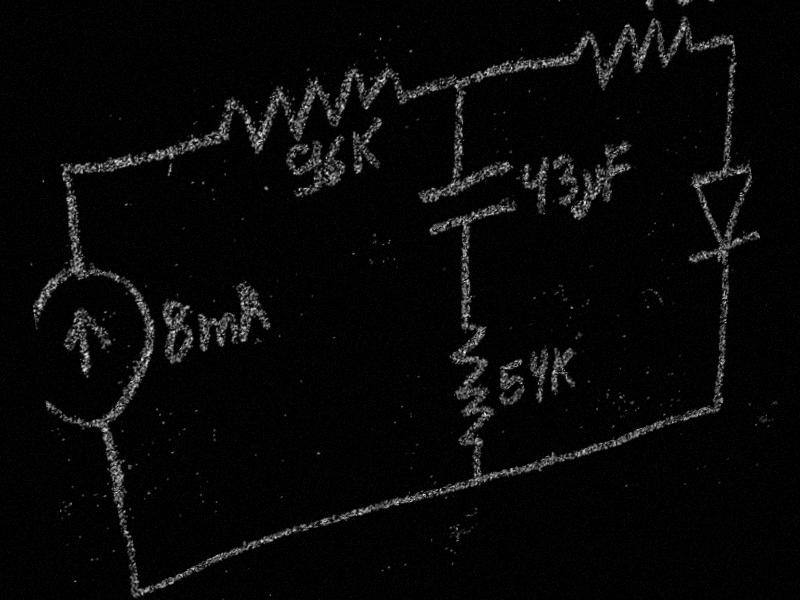 96K
43µF
8mA
54K